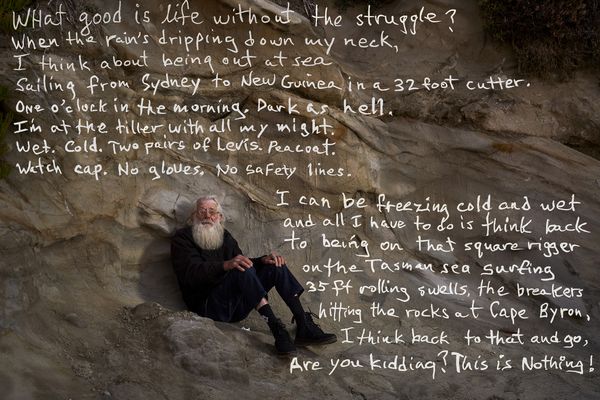 What good is life without the struggle?
When the rain's dripping down my neck,
I think about being out at sea
sailing from Sydney to New Guinea in a 32 foot cutter.
One o'clock in the morning. Dark as hell.
I'm at the tiller with all my might.
Wet. Cold. Two pairs of Levis. Peacoat.
Watch cap. No gloves. No safety lines.
I can be freezing cold and wet
and all I have to do is think back
to being on that square rigger
on the Tasman sea surfing
35 ft rolling swells, the breakers
hitting the rocks at Cape Byron,
I think back to that and go,
Are you kidding? This is Nothing!